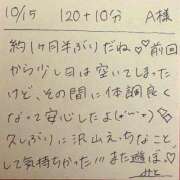 10/15 120+10分 A様
約1ヶ月半ぶりだね♡前回
から少し日は空いてしまった
けど、その間に体調良く
なって安心したよ(
久しぶりに沢山えっちなこと
して気持ちかった!!!また遊ぼ♡